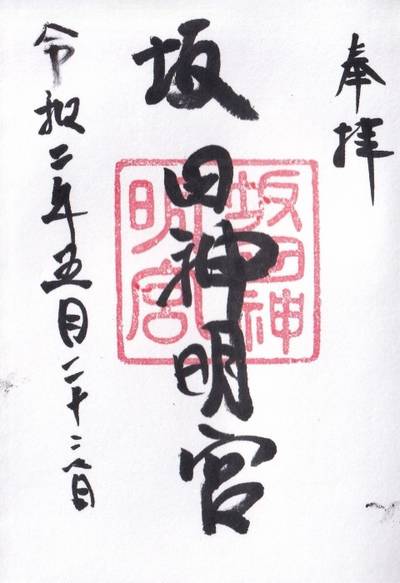 奉拝
坂田神明宮
坂田神
明宮
令和二年五月二十三日